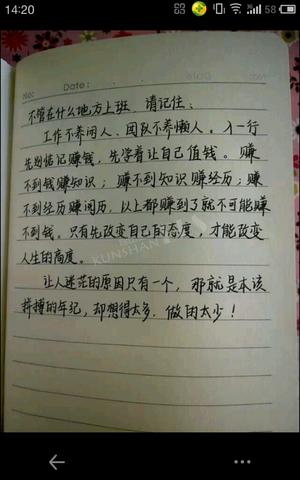 14:20
58
No:
Date:
不管在什么地方上班 请记住：
工作不养闲人、团队不养懒人。入一行
先别惦记赚钱，先学着让自己值钱。赚
不到钱赚知识；赚不到知识赚经历；赚
不到经历赚阅历，以上都赚到了就不可能赚
不到钱。只有先改变自己的态度，才能改变
人生的高度。
KUNSHAN
让人迷茫的原因只有一个，那就是本该
拼搏的年纪，却想得太多，做的太少！